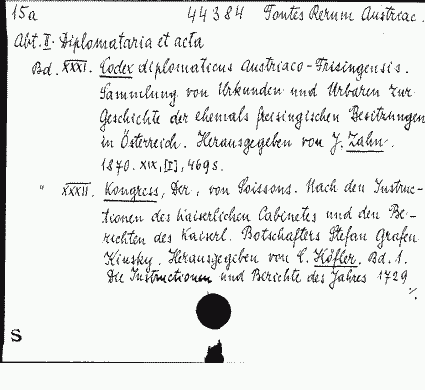 15a 44384 Fontes Rerum Austriac.
Abt. II. Diplomataria et acta
Bd. XXXI. Codex diplomaticus Austriaco-Frisingensis.
Sammlung von Urkunden und Urbaren zur
Geschichte der ehemals freisingischen Besitzungen
in Österreich. Herausgegeben von J. Zahn.
1870. XIX, [I], 469 S.
" XXXII. Kongress, Der, von Soissons. Nach den Instruc-
tionen des kaiserlichen Cabinetes und den Be-
richten des kaiserl. Botschafters Stefan Grafen
Kinsky. Herausgegeben von C. Höfler. Bd. 1.
Die Instructionen und Berichte des Jahres 1729
./.
S